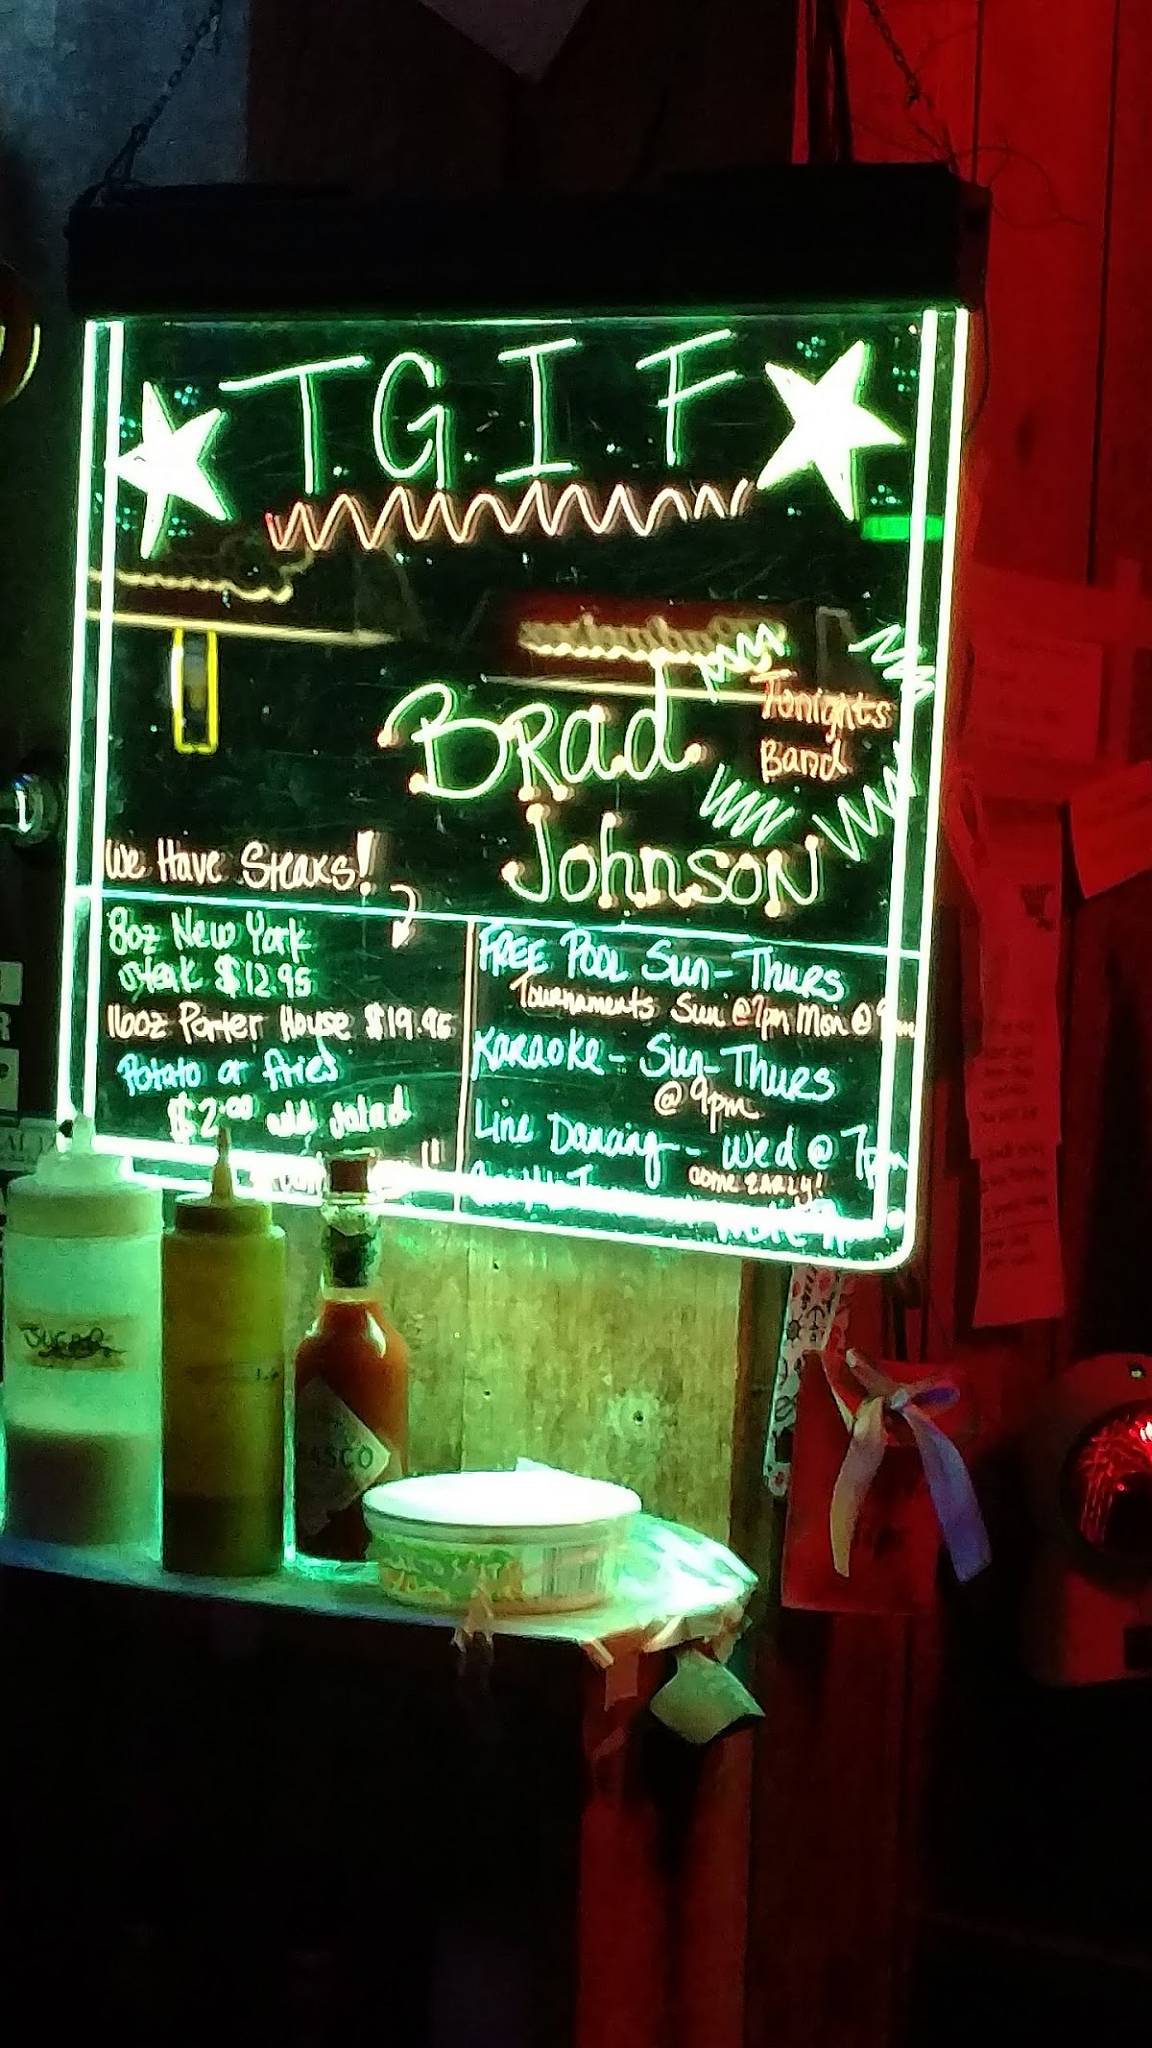 T.G.I.F
Tonights
Band
Brad
Johnson
We Have Steaks!
8oz New York
Steak $12.95
16oz Porter House $19.95
Potato or fries
$2.00 add salad
FREE POOL Sun-Thurs
Tournaments Sun @7pm Mon @
Karaoke - Sun-Thurs
@ 9pm
Line Dancing - Wed @ 7pm
COME EARLY!
SUGAR
ASCO